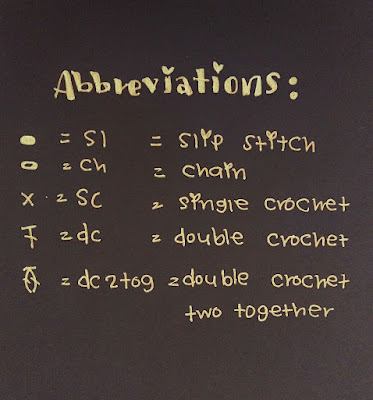 Abbreviations:
= sl = slip stitch
= ch = chain
x = sc = single crochet
= dc = double crochet
= dc2tog = double crochet
two together